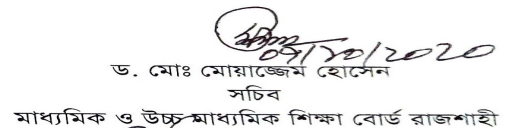 ০৭/১০/২০২০
ড. মোঃ মোয়াজ্জেম হোসেন
সচিব
মাধ্যমিক ও উচ্চ মাধ্যমিক শিক্ষা বোর্ড রাজশাহী